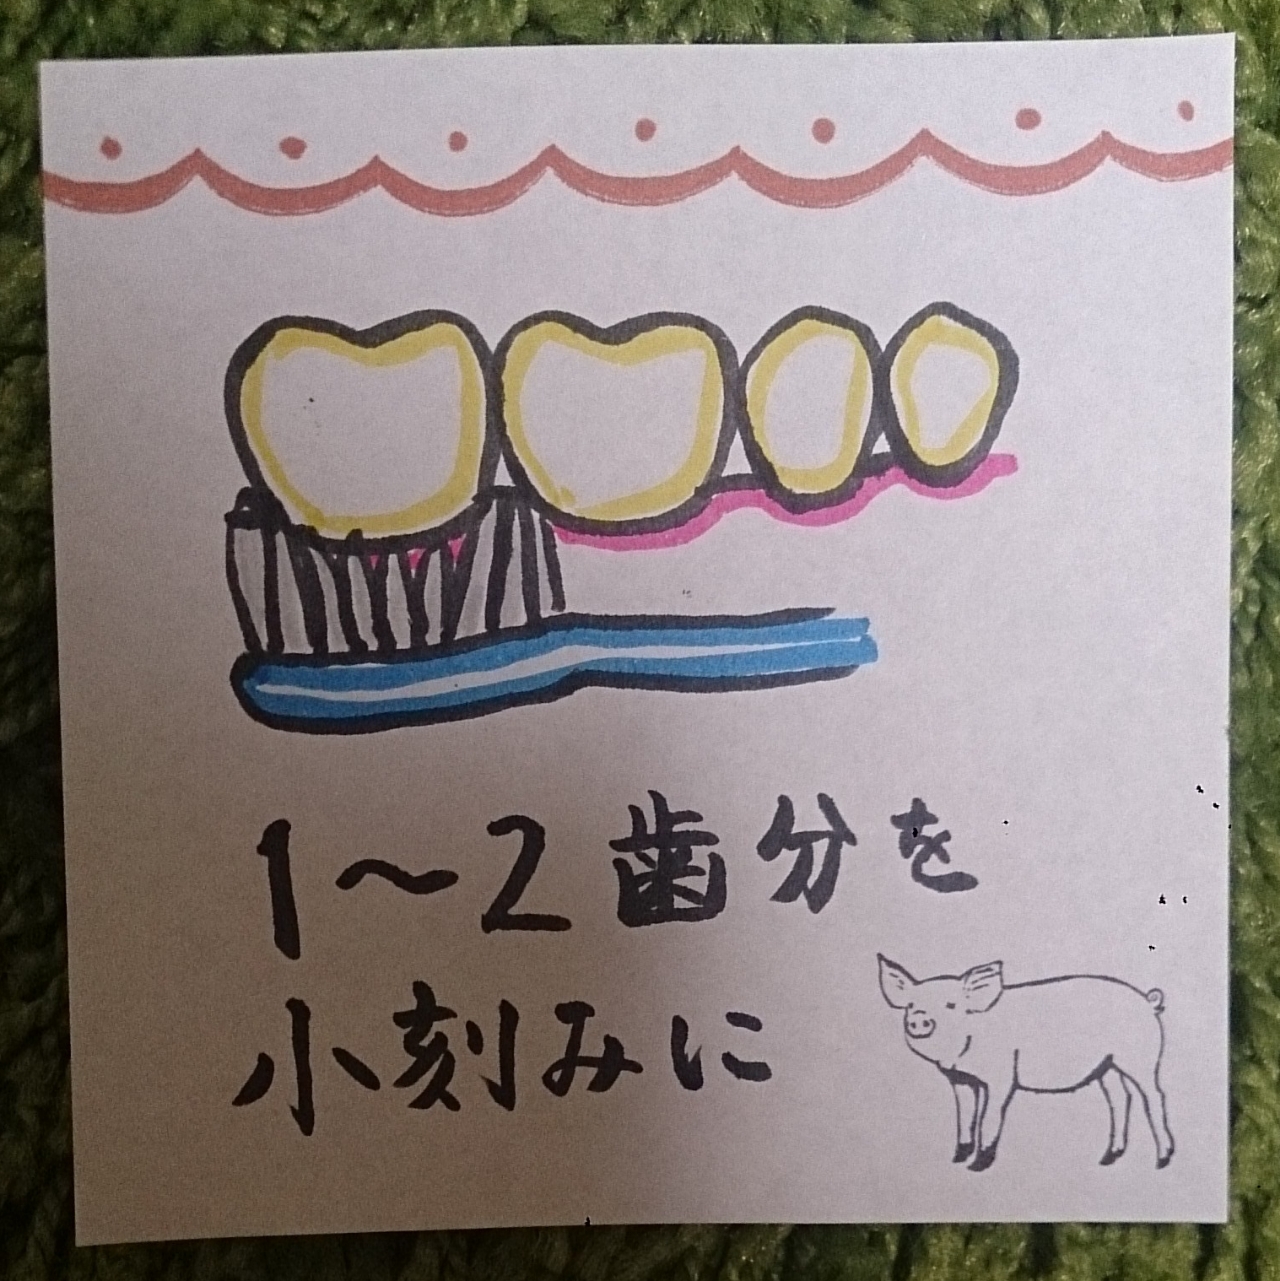 1〜2歯分を
小刻みに